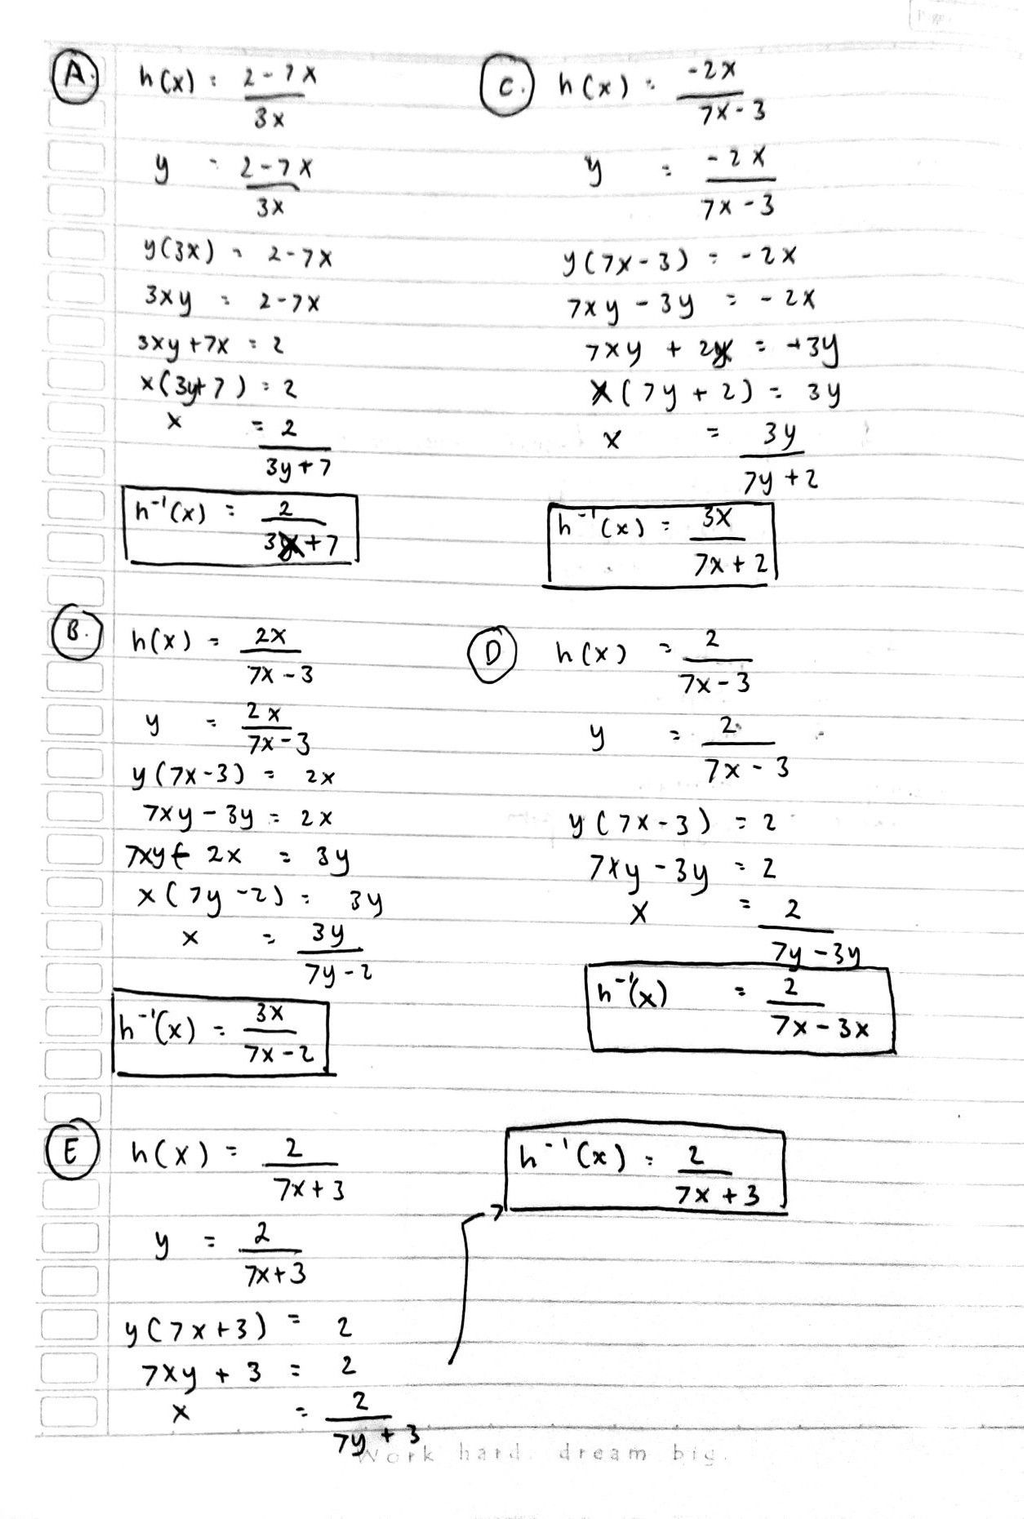 A. h(x) = 2-7x / 3x
y = 2-7x / 3x
y(3x) = 2-7x
3xy = 2-7x
3xy+7x = 2
x(3y+7) = 2
x = 2 / 3y+7
h⁻¹(x) = 2 / 3x+7
B. h(x) = 2x / 7x-3
y = 2x / 7x-3
y(7x-3) = 2x
7xy-3y = 2x
7xy - 2x = 3y
x(7y-2) = 3y
x = 3y / 7y-2
h⁻¹(x) = 3x / 7x-2
C. h(x) = -2x / 7x-3
y = -2x / 7x-3
y(7x-3) = -2x
7xy - 3y = -2x
7xy + 2x = +3y
x(7y+2) = 3y
x = 3y / 7y+2
h⁻¹(x) = 3x / 7x+2
D h(x) = 2 / 7x-3
y = 2 / 7x-3
y(7x-3) = 2
7xy-3y = 2
x = 2 / 7y-3y
h⁻¹(x) = 2 / 7x-3x
E h(x) = 2 / 7x+3
y = 2 / 7x+3
y(7x+3) = 2
7xy + 3 = 2
x = 2 / 7y+3
h⁻¹(x) = 2 / 7x+3
Work hard. dream big.